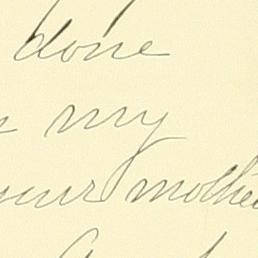 done
my
your mother